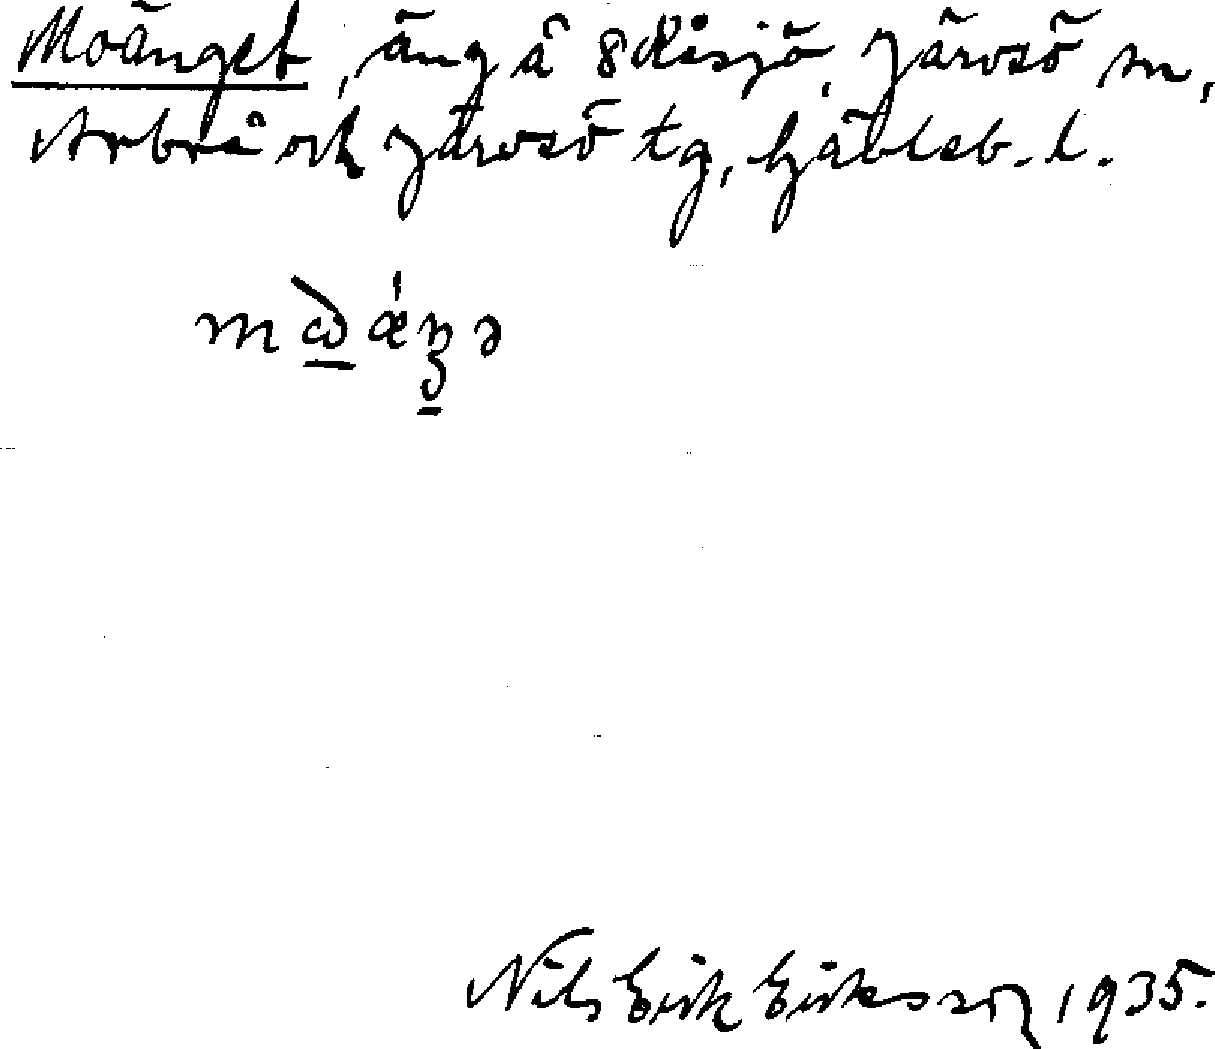 Moänget, äng å 8 Kåsjö, Järvsö sn,
Arbrå och Järvsö tg, Gävleb. l.
Nils Erik Eriksson 1935.